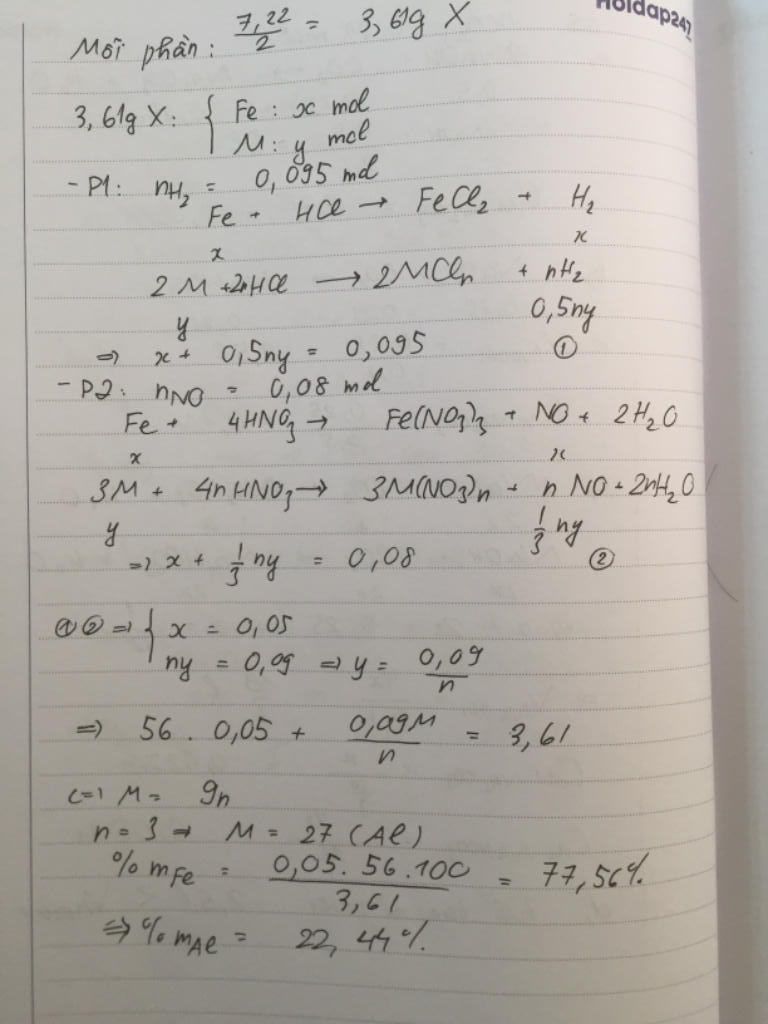 Hoidap247
Mỗi phần: 7,22/2 = 3,61g X
3,61g X: { Fe : x mol
M : y mol
- P1: nH₂ = 0,095 mol
Fe + HCl → FeCl₂ + H₂
x x
2M + 2nHCl → 2MCln + nH₂
y 0,5ny
=> x + 0,5ny = 0,095 ①
- P2: nNO = 0,08 mol
Fe + 4HNO₃ → Fe(NO₃)₃ + NO + 2H₂O
x x
3M + 4nHNO₃ → 3M(NO₃)n + n NO + 2nH₂O
y 1/3 ny
=> x + 1/3 ny = 0,08 ②
① ② => { x = 0,05
ny = 0,09 => y = 0,09/n
=> 56 . 0,05 + 0,09M/n = 3,61
<=> M = 9n
n = 3 => M = 27 (Al)
% mFe = 0,05.56.100/3,61 = 77,56%
=> % mAl = 22,44%.